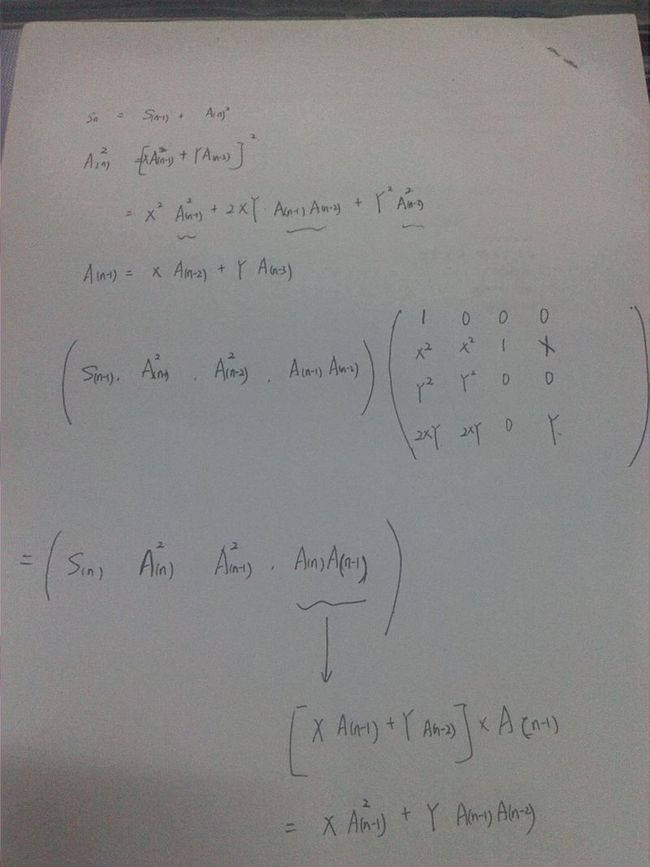 Sn = S(n-1) + A(n)²
A(n)² = [XA(n-1) + YA(n-2)]²
= X² A(n-1)² + 2XY A(n-1) A(n-2) + Y² A(n-2)²
A(n-1) = X A(n-2) + Y A(n-3)
1 0 0 0
X² X² 1 X
( S(n-1) . A(n-1)² . A(n-2)² . A(n-1) A(n-2) )
Y² Y² 0 0
2XY 2XY 0 Y
= ( S(n) A(n)² A(n-1)² . A(n) A(n-1) )
[ X A(n-1) + Y A(n-2) ] × A(n-1)
= X A(n-1)² + Y A(n-1) A(n-2)